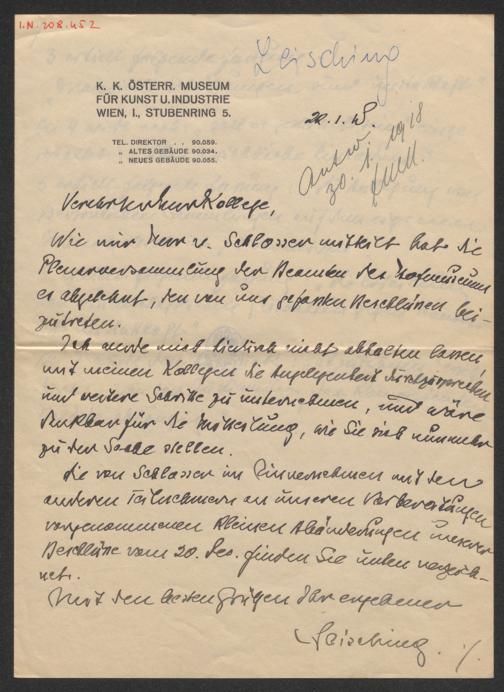 I.N. 208.452
Leisching
K. K. ÖSTERR. MUSEUM
FÜR KUNST U. INDUSTRIE
WIEN, I., STUBENRING 5.
TEL. DIREKTOR . . 90.059.
„ ALTES GEBÄUDE 90.034.
„ NEUES GEBÄUDE 90.055.
Antw.
30. 1. 1918
Verehrter Herr Kollege,
Wie mir Herr v. Schlosser mitteilt hat die
Plenarversammlung der Beamten des Hofmuseums
es abgelehnt, den von uns gefaßten Beschlüssen bei-
zutreten.
Ich werde mich hiedurch nicht abhalten lassen,
mit meinen Kollegen die Angelegenheit durchzusprechen
und weitere Schritte zu unternehmen, und wäre
dankbar für die Mitteilung, wie Sie sich nunmehr
zu der Sache stellen.
Die von Schlosser im Einvernehmen mit den
anderen Teilnehmern an unseren Vorbereitungen
vorgenommenen kleinen Abänderungen unserer
Beschlüsse vom 20. Dez. finden Sie unten verzeich-
net.
Mit den besten Grüßen Ihr ergebener
Leisching. ./.